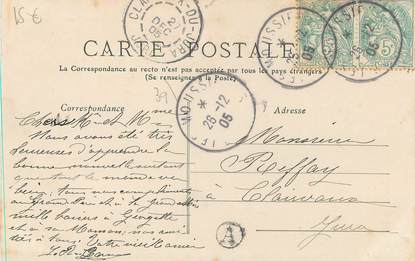 15 €
CLAIRVAUX-DU-JURA
CARTE POSTALE
La Correspondance au recto n'est pas acceptée par tous les pays étrangers
(Se renseigner à la Poste)
Correspondance
Adresse
MOUSSIÈRES
28-12
05
39
Chers Mr et Mme
Nous avons été très
heureuses d'apprendre la
bonne nouvelle surtout
que tout le monde va
bien; tous nos compliments
au grand Père et à la grand
mille baisers à Georgette
et à sa Maman, nos ami-
tiés à tous. Votre vieille amie
Monsieur
Reffay
à Clairvaux
Jura
A